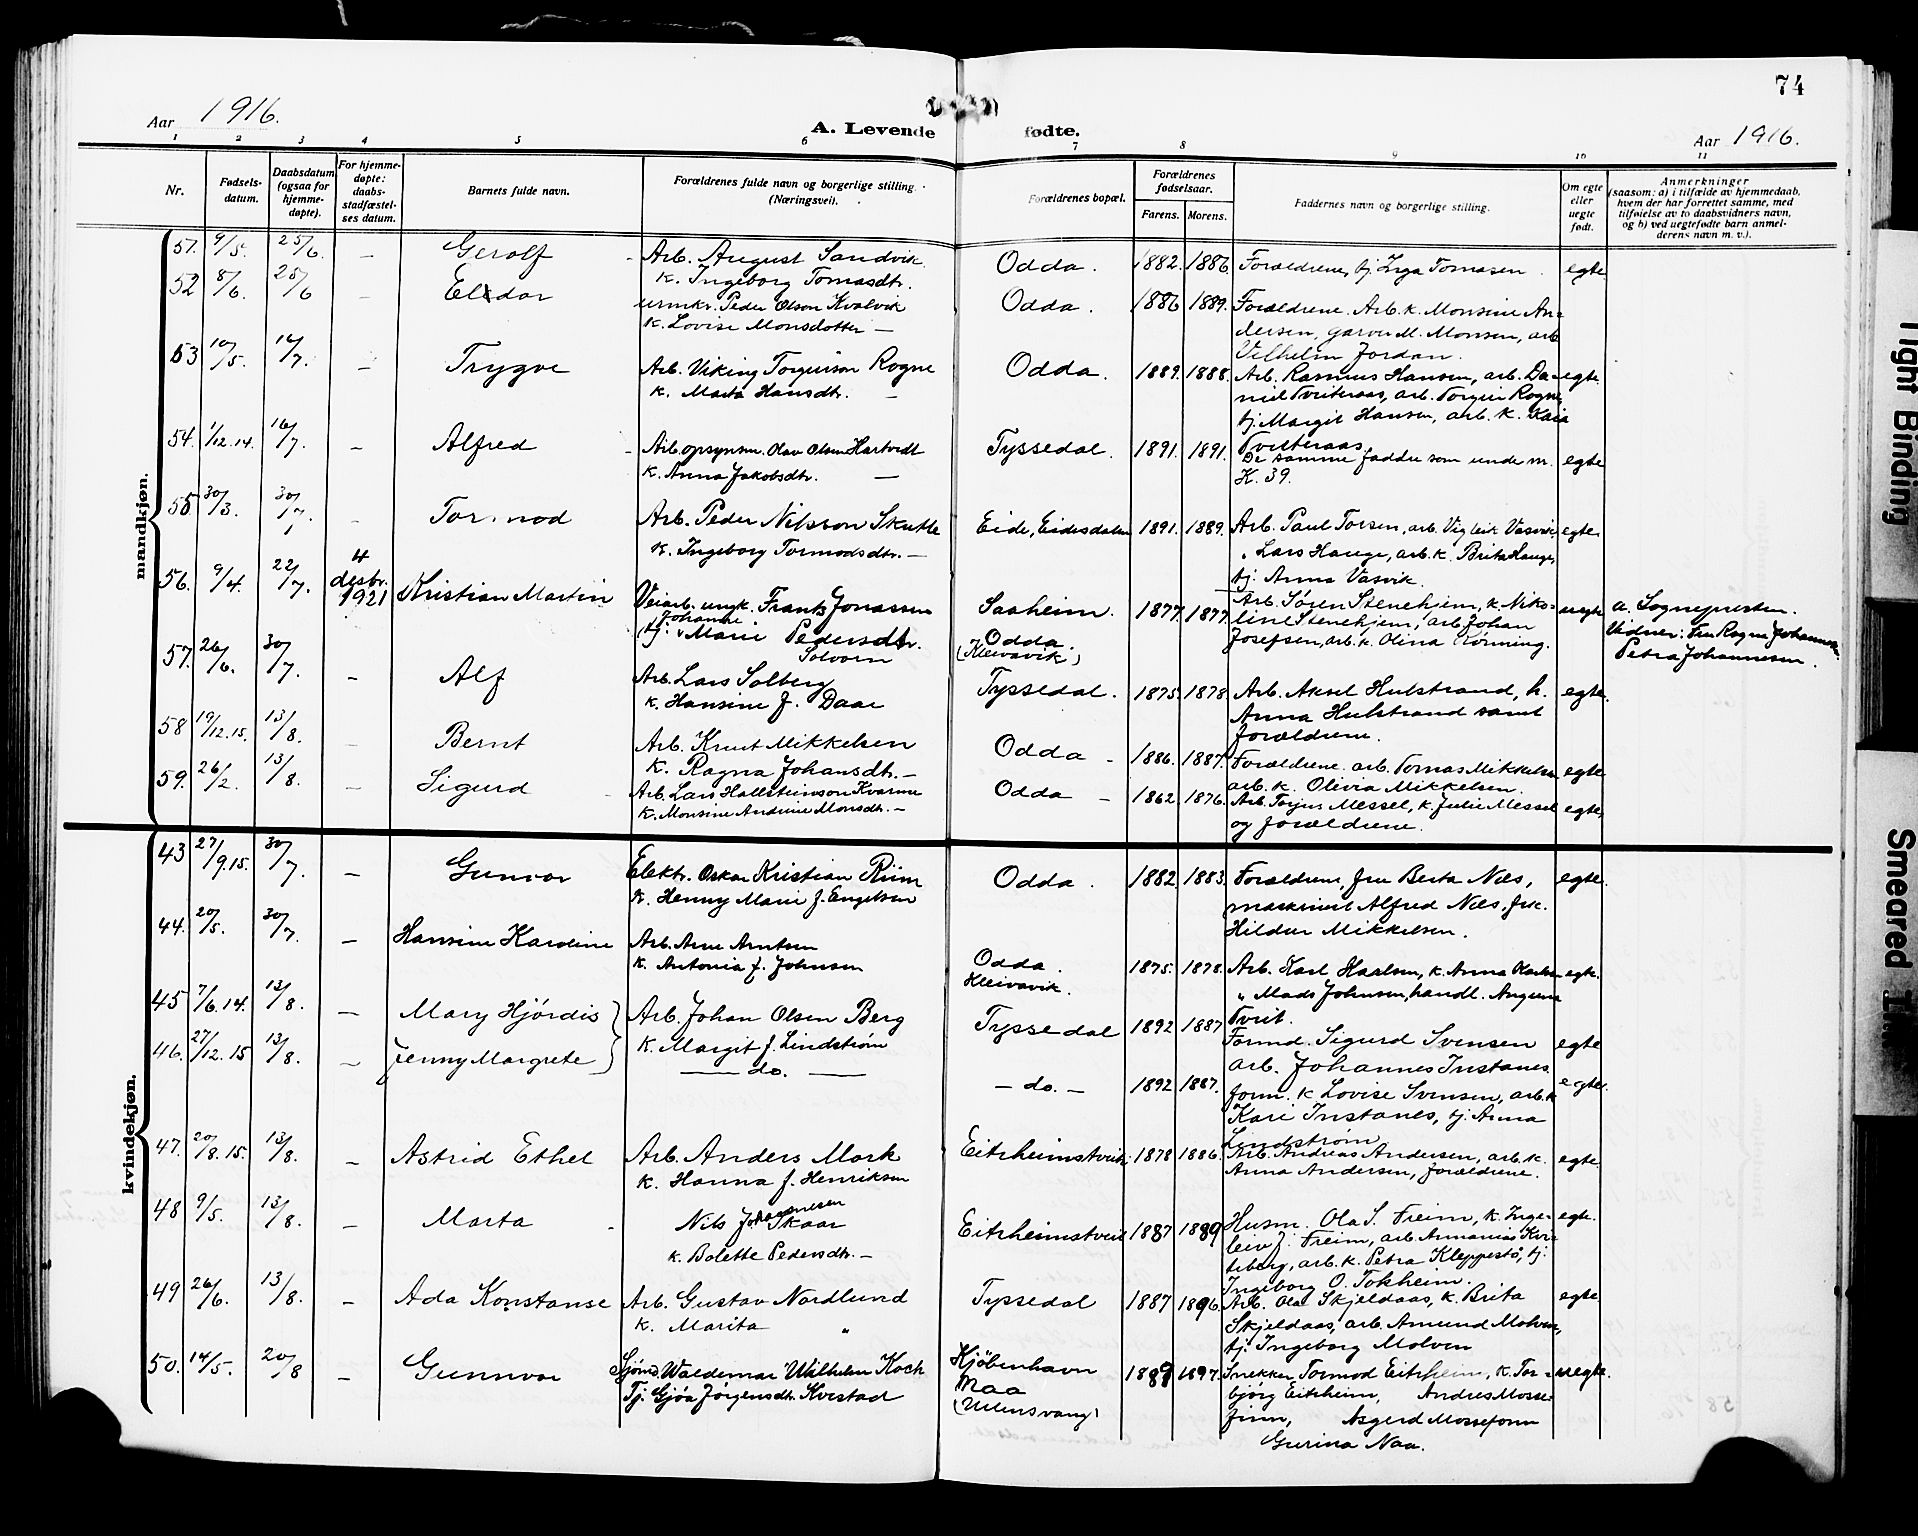 74
Aar 1916.
A. Levende fødte.
Aar 1916.
1 2 3 4 5 6 7 8 9 10 11
Nr.
Fødsels-
datum.
Daabsdatum
(ogsaa for
hjemme-
døpte).
For hjemme-
døpte:
daabs-
stadfæstel-
ses datum.
Barnets fulde navn.
Forældrenes fulde navn og borgerlige stilling
(Næringsvei).
Forældrenes bopæl.
Forældrenes
fødselsaar.
Farens. Morens.
Faddernes navn og borgerlige stilling.
Om egte
eller
uegte
født.
Anmerkninger
(saasom: a) i tilfælde av hjemmedaab,
hvem der har forrettet samme, med
tilføielse av to daabsvidners navn,
og b) ved uegtefødte barn anmel-
derens navn m. v.).
mandkjøn.
51. 9/5. 25/6. – Gerolf – Arb. August Sandvik
k. Ingeborg Tomasdtr.
Odda. 1882. 1886. Forældrene, tj. Inga Tomasen. egte
52 8/6. 25/6 – Eldar
urmkr. Peder Olson Kvalvik
k. Lovise Monsdotter –
Odda. 1886 1889. Forældrene. Arb. k. Monsine An-
dersen, garver M. Monsen, arb
Vilhelm Jordan.
53 10/5. 16/7. – Trygve Arb. Viking Torgeirson Rogne
k. Marta Hansdtr. –
Odda. 1889. 1888. Arb. Rasmus Hansen, arb. Da- egte.
niel Tveiteraas, arb. Torgeir Rogne,
tj. Margit Hansen, arb. k. Kaia
Tveiteraas.
54. 1/12.14. 16/7. – Alfred – Arb.opsynsm. Olav Olsen Hartvedt
k. Anna Jakobsdtr. –
Tyssedal. 1891. 1891. De samme faddre som under m. egte
K. 39.
55 30/3. 30/7. – Tormod Arb. Peder Nilsson Skutle
k. Ingeborg Tormodsdtr. –
Eide, Eidesdalen 1891. 1889. Arb. Paul Torsen, arb. Vigleik Vasvik, egte.
" Lars Hauge, arb. k. Brita Hauge,
tj. Anna Vasvik.
56. 9/4. 22/7. 4
desbr.
1921 Kristian Martin Veiarb. ungk. Frantz Jonassen
Johanne
tj. Marie Pedersdtr.
Solvorn
Saaheim.
Odda.
(Kleivavik)
1877. 1877. Arb. Søren Stenehjem, k. Niko- uegte
line Stenehjem, arb. Johan
Josefsen, arb. k. Olina Rønning.
a. Sogneprestin.
Vidner: Fru Ragna Johannesen.
Petra Johannesen.
57. 26/6. 30/7. – Alf Arb. Lars Solberg
k. Hansine J. Daae
Tyssedal. 1875. 1878. Arb. Aksel Hulstrand, k. egte.
Anna Hulstrand samt
forældrene.
58 19/12.15. 13/8. – Bernt Arb. Knut Mikkelsen
k. Ragna Johansdtr. –
Odda – 1886. 1887. Forældrene. arb. Tomas Mikkelsen egte
arb. k. Olivia Mikkelsen.
59. 26/2. 13/8. – Sigurd Arb. Lars Hallsteinson Kvarme
k. Monsine Andrine Monsdtr. –
Odda – 1862. 1876. Arb. Torjus Messel, k. Julie Messel egte,
og forældrene.
kvindekjøn.
43 27/9.15. 30/7. – Gunvor Elektr. Oskar Kristian Riim
k. Henny Marie f. Engelsen
Odda. 1882 1883. Forældrene, fru Berta Næs, egte.
maskinist Alfred Næs, frk.
Hildur Mikkelsen.
44. 20/5. 30/7. – Hansine Karoline Arb. Arne Arntsen
k. Antonia f. Johnsen
Odda.
Kleivavik.
1875. 1878. Arb. Karl Karlsen, k. Anna Karlsen egte.
" Mads Johnsen, handl. Angunn
Tveit.
45 7/6.14. 13/8. – Mary Hjørdis Arb. Johan Olsen Berg
k. Margit f. Lindstrøm
Tyssedal 1892 1887 Formd. Sigurd Svensen egte
arb. Johannes Instanes
46. 27/12.15 13/8. – Jenny Margrete – do. –
– do. – 1892 1887. form. k Lovise Svensen, arb. k egte.
Kari Instanes, tj. Anna
Lindstrøm
47. 20/8.15. 13/8. – Astrid Ethel Arb. Anders Mork
k. Hanna f. Henriksen
Eitrheimstveit 1878 1886. Arb. Andreas Andersen, arb. k. egte.
Anna Andersen, forældrene.
48 9/5. 13/8. – Marta – Nils Johannesen Skaar
k. Bolette Pedersdtr. –
Eitrheimstveit 1887 1889 Husm. Ola S. Freim, k. Inge- egte.
leiv J. Freim, arb. Armanias Kvi-
teberg, arb. k. Petra Kleppestø, tj.
Ingeborg O. Tokheim.
49 26/6. 13/8. – Ada Konstanse Arb. Gustav Nordlund
k. Marita "
Tyssedal 1887 1896. Arb. Ola Skjeldaas, k. Brita egte
Skjeldaas, arb. Amund Molven,
tj. Ingeborg Molven
50. 14/5. 20/8 – Gunnvor Sjøm. Waldemar Wilhelm Koch
Tj. Gjøa Jørgensdtr. Kvestad
Kjøbenhavn
Naa
(Ullensvang)
1889 1897. Snekker Tormod Eitrheim, k. Tor- uegte.
bjørg Eitrheim, Andres Mosse-
finn, Asgerd Mossefonn
Gurina Naa.
Tight Binding
Smeared Ink